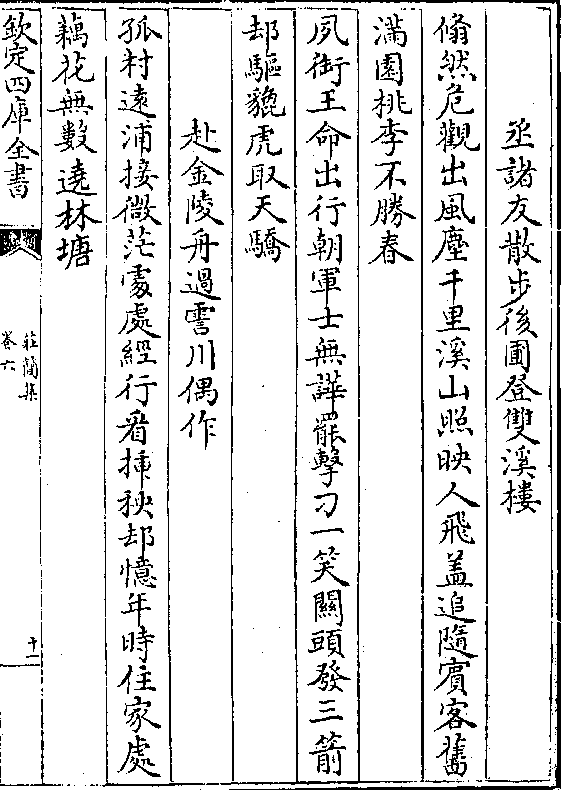 丞諸友散步後圃登雙溪樓
翛然危觀出風塵千里溪山照映人飛盖追隨賓客舊
滿園桃李不勝春
夙銜王命出行朝軍士無譁罷擊刁一笑關頭發三箭
却驅貔虎取天驕
赴金陵舟過霅川偶作
孤村遠浦接微茫處處經行看揷秧却憶年時住家處
藕花無數遶林塘
欽定四庫全書
莊簡集
卷六
十一